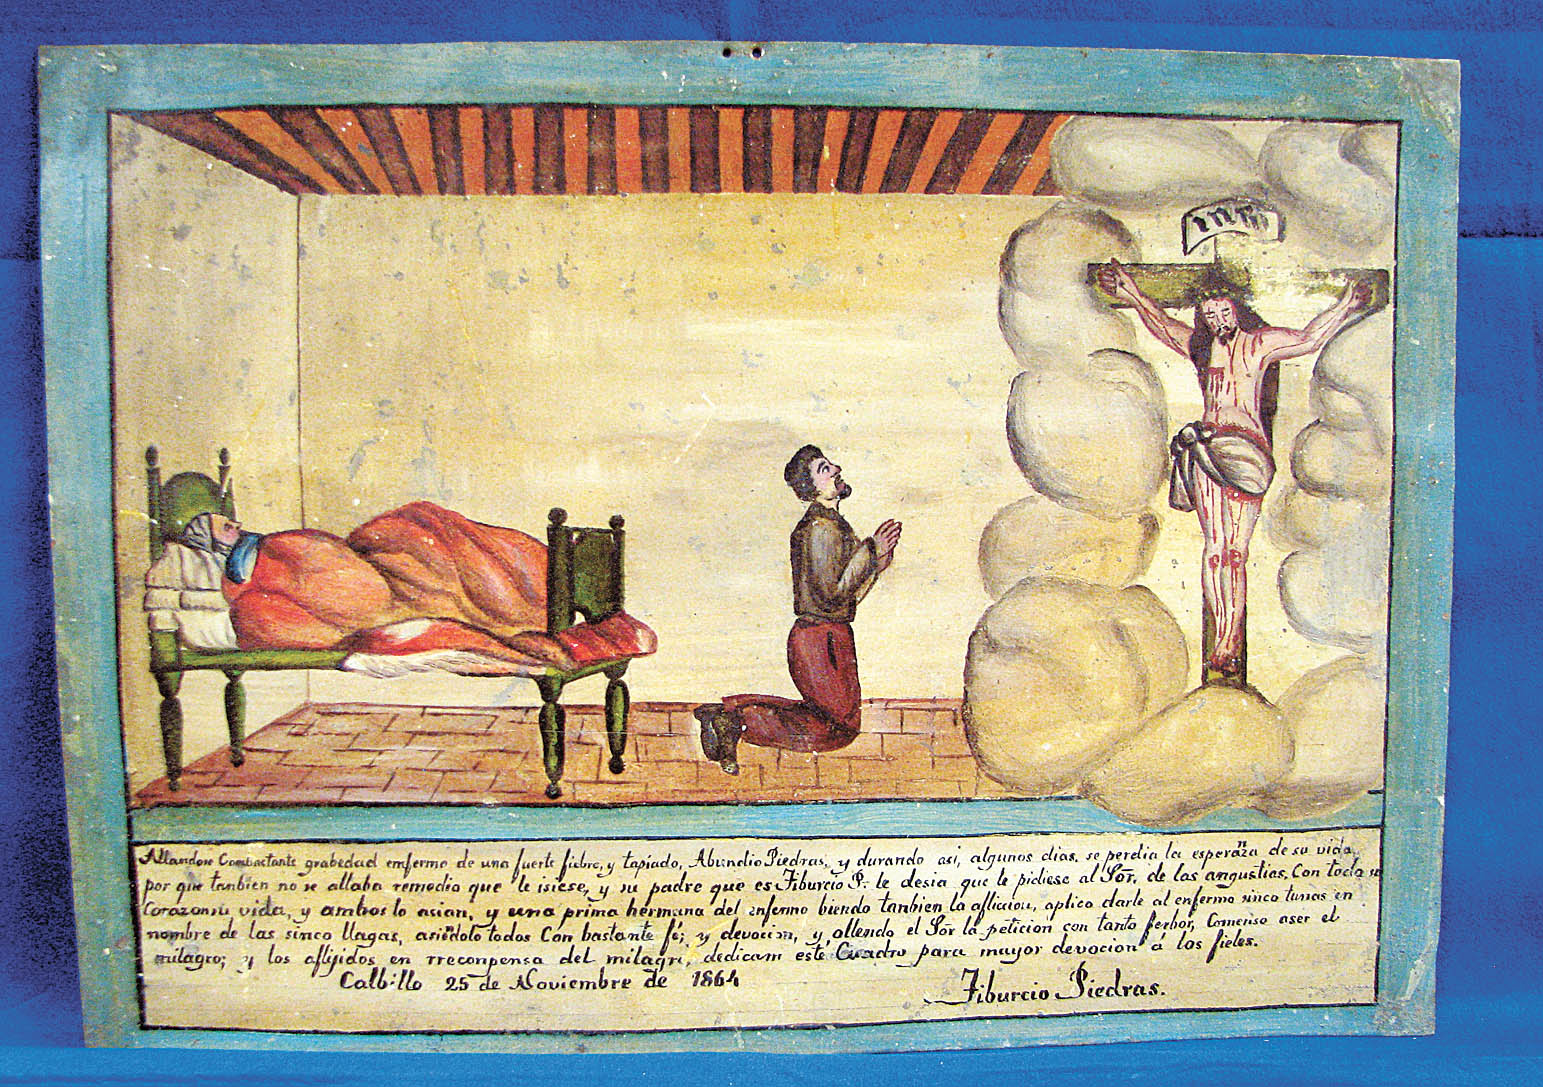 INRI
Allandose Combastante grabedad emfermo de una fuerte fiebre, y tapiado, Abundio Piedras; y durando asi, algunos dias. se perdia la esperanza de su vida,
por que tanbien no se allaba remedio que le isiese, y su padre que es Tiburcio P. le desia que le pidiese al Sor. de las angustias. Con todo su
Corazon su vida, y ambos lo asian, y una prima hermana del enfermo biendo tanbien la afliccion, aplico darle al enfermo sinco tunas en
nombre de las sinco llagas, asiedolo todos Con bastante fé; y devocion, y ollendo el Sor la peticion con tanto ferbor, Comenso aser el
milagro; y los aflijidos en rreconpensa del milagri, dedicam esté Cuadro para mayor devocion á los fieles.
Calbillo 25 de Noviembre de 1864
Tiburcio Piedras.